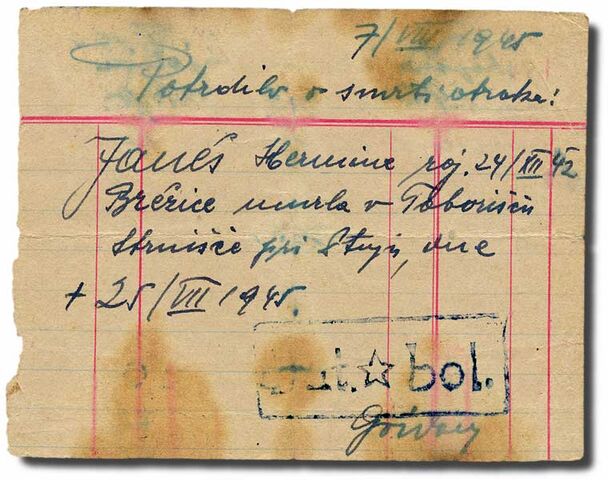 7/VIII 1945
Potrdilo o smrti otroka!
Janés Hermine roj. 24/XII 42
Brézice umrla v Taborišču
Strnišče pri Ptuju, dne
+ 25/VII 1945.
☆ bol.